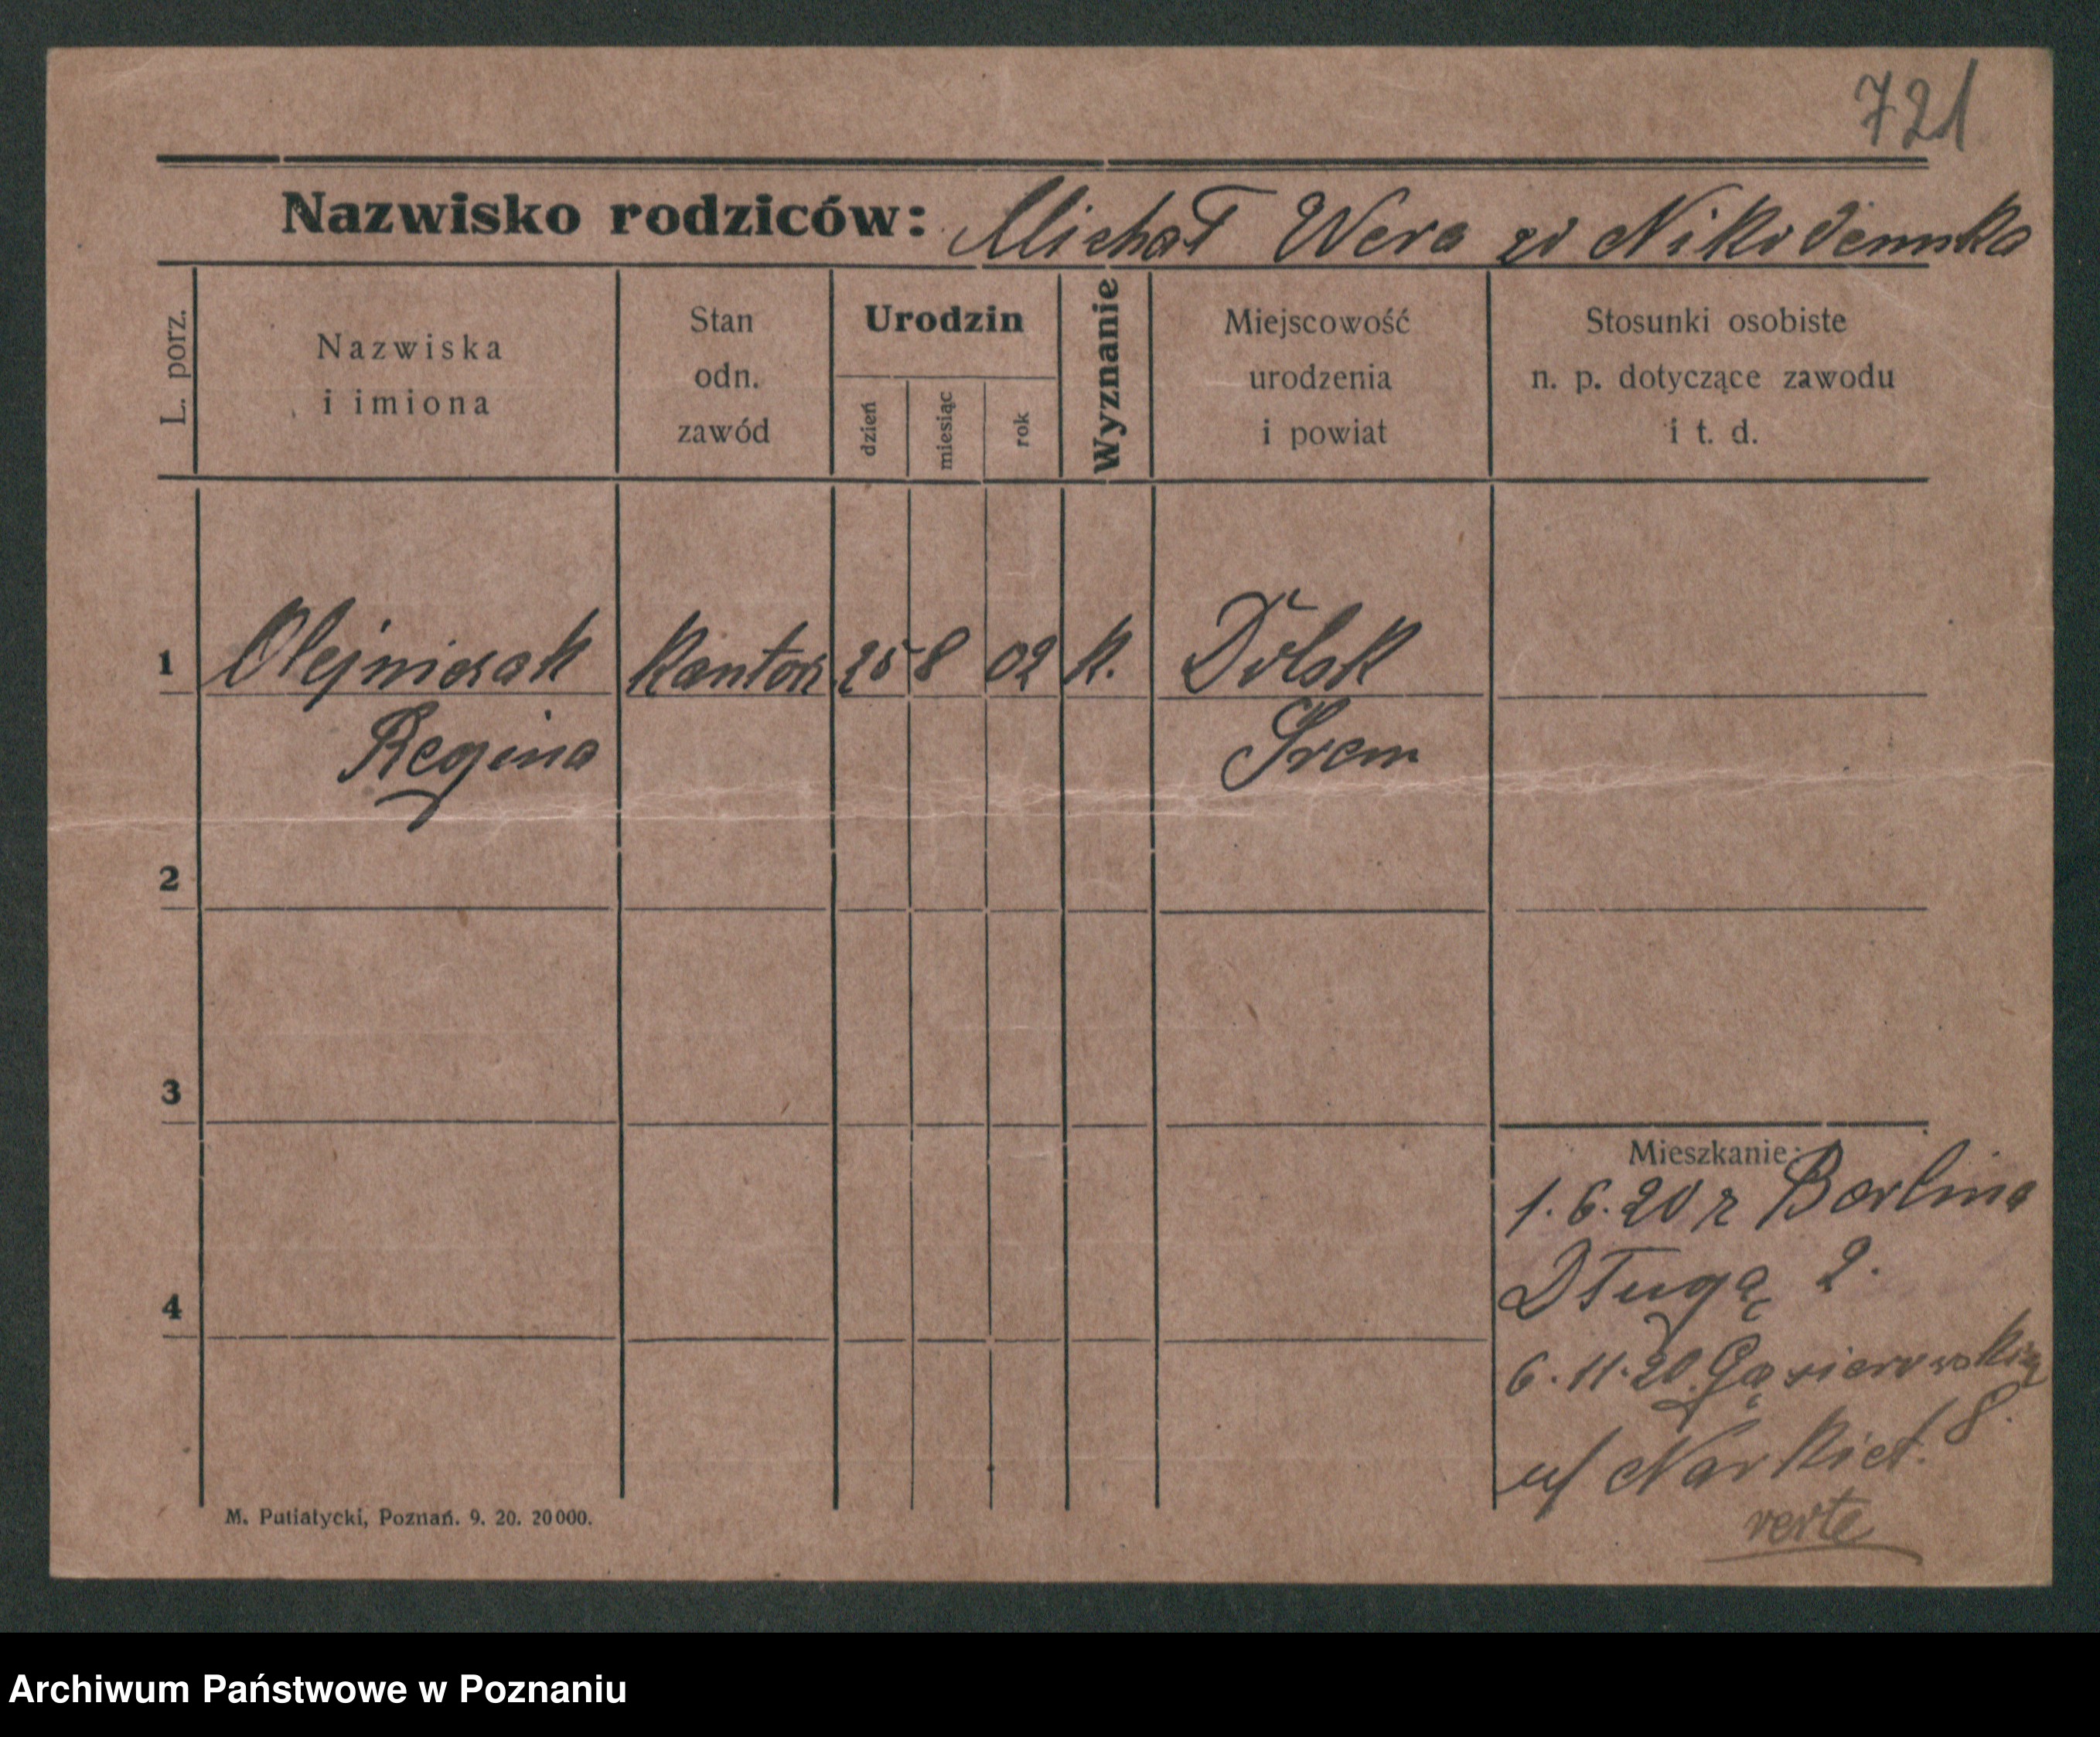 721
Nazwisko rodziców: Michał Wera zd Nikodemska
L. porz.
Nazwiska
i imiona
Stan
odn.
zawód
Urodzin
dzień
miesiąc
rok
Wyznanie
Miejscowość
urodzenia
i powiat
Stosunki osobiste
n. p. dotyczące zawodu
i t. d.
1 Olejniczak Kantor 25 8 02 K. Dolsk
Regina Srem
2
3
Mieszkanie:
1. 6. 20 z Berlina
Długa 2.
4
6. 11. 20 Gąsiorowskich 8.
u/ Narkiet.
verte
M. Putiatycki, Poznań. 9. 20. 20000.
Archiwum Państwowe w Poznaniu